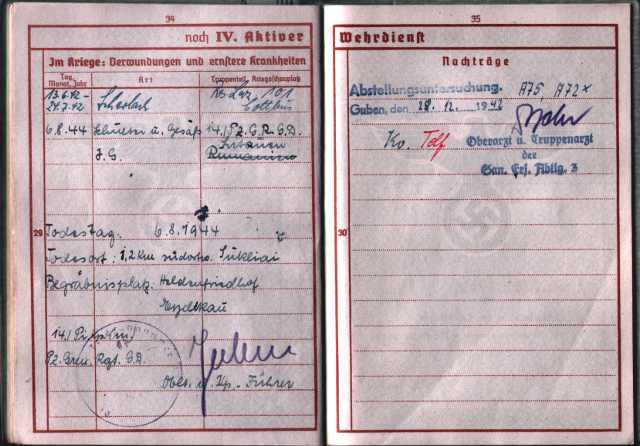 34
noch IV. Aktiver
Im Kriege: Verwundungen und ernstere Krankheiten
Tag, Monat, Jahr
Art
Truppenteil, Kriegsschauplatz
13.6.42-
24.7.42 Scharlach Res. Laz. 101
Cottbus
6.8.44 u. Gesäß 14./Pz.G.R.G.D.
J.G. Litauen
Rumänien
29
Todestag: 6.8.1944
Todesort: 1,2 km südostw. Sukliai
Begräbnisplatz: Heldenfriedhof
Heydekrug
14./
Pz. Gren. Rgt. G.D.
Oblt. u. Kp.-Führer
35
Wehrdienst
Nachträge
Abstellungsuntersuchung. A75 A72x
Guben, den 28. 12. 1942
Kv. Tdf
Oberarzt u. Truppenarzt
der
San. Ers. Abtlg. 3
30